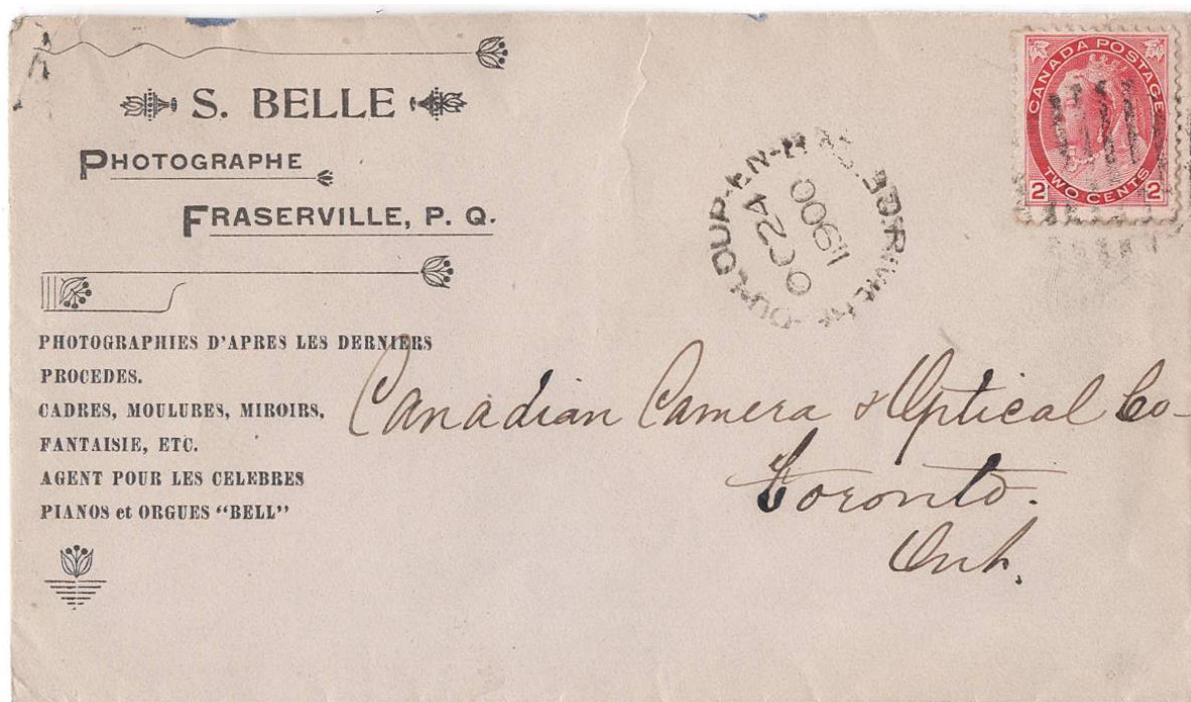 S. BELLE
PHOTOGRAPHE
FRASERVILLE, P. Q.
PHOTOGRAPHIES D'APRES LES DERNIERS
PROCEDES.
CADRES, MOULURES, MIROIRS,
FANTAISIE, ETC.
AGENT POUR LES CELEBRES
PIANOS et ORGUES "BELL"
DU-LOUP-EN-BAS
OC 24
1900
CANADA POSTAGE
TWO CENTS
2 2
Canadian Camera & Optical Co
Toronto.
Ont.